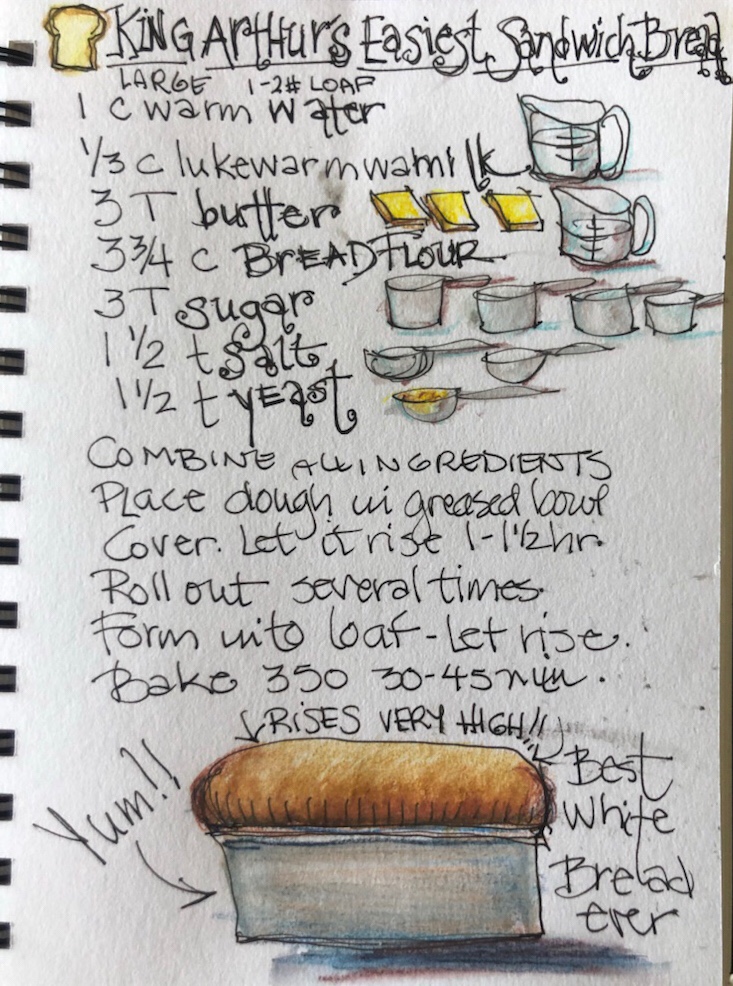 King Arthur's Easiest Sandwich Bread
LARGE 1-2# LOAF
1 c warm water
1/3 c lukewarmwamilk
3 T butter
3 3/4 c BREAD FLOUR
3 T sugar
1 1/2 t salt
1 1/2 t yeast
COMBINE ALL INGREDIENTS
Place dough in greased bowl
Cover. Let it rise 1-1 1/2 hr.
Roll out several times.
Form into loaf - Let rise.
Bake 350 30-45 min.
RISES VERY HIGH!!
Yum!!
Best
White
Bread
ever